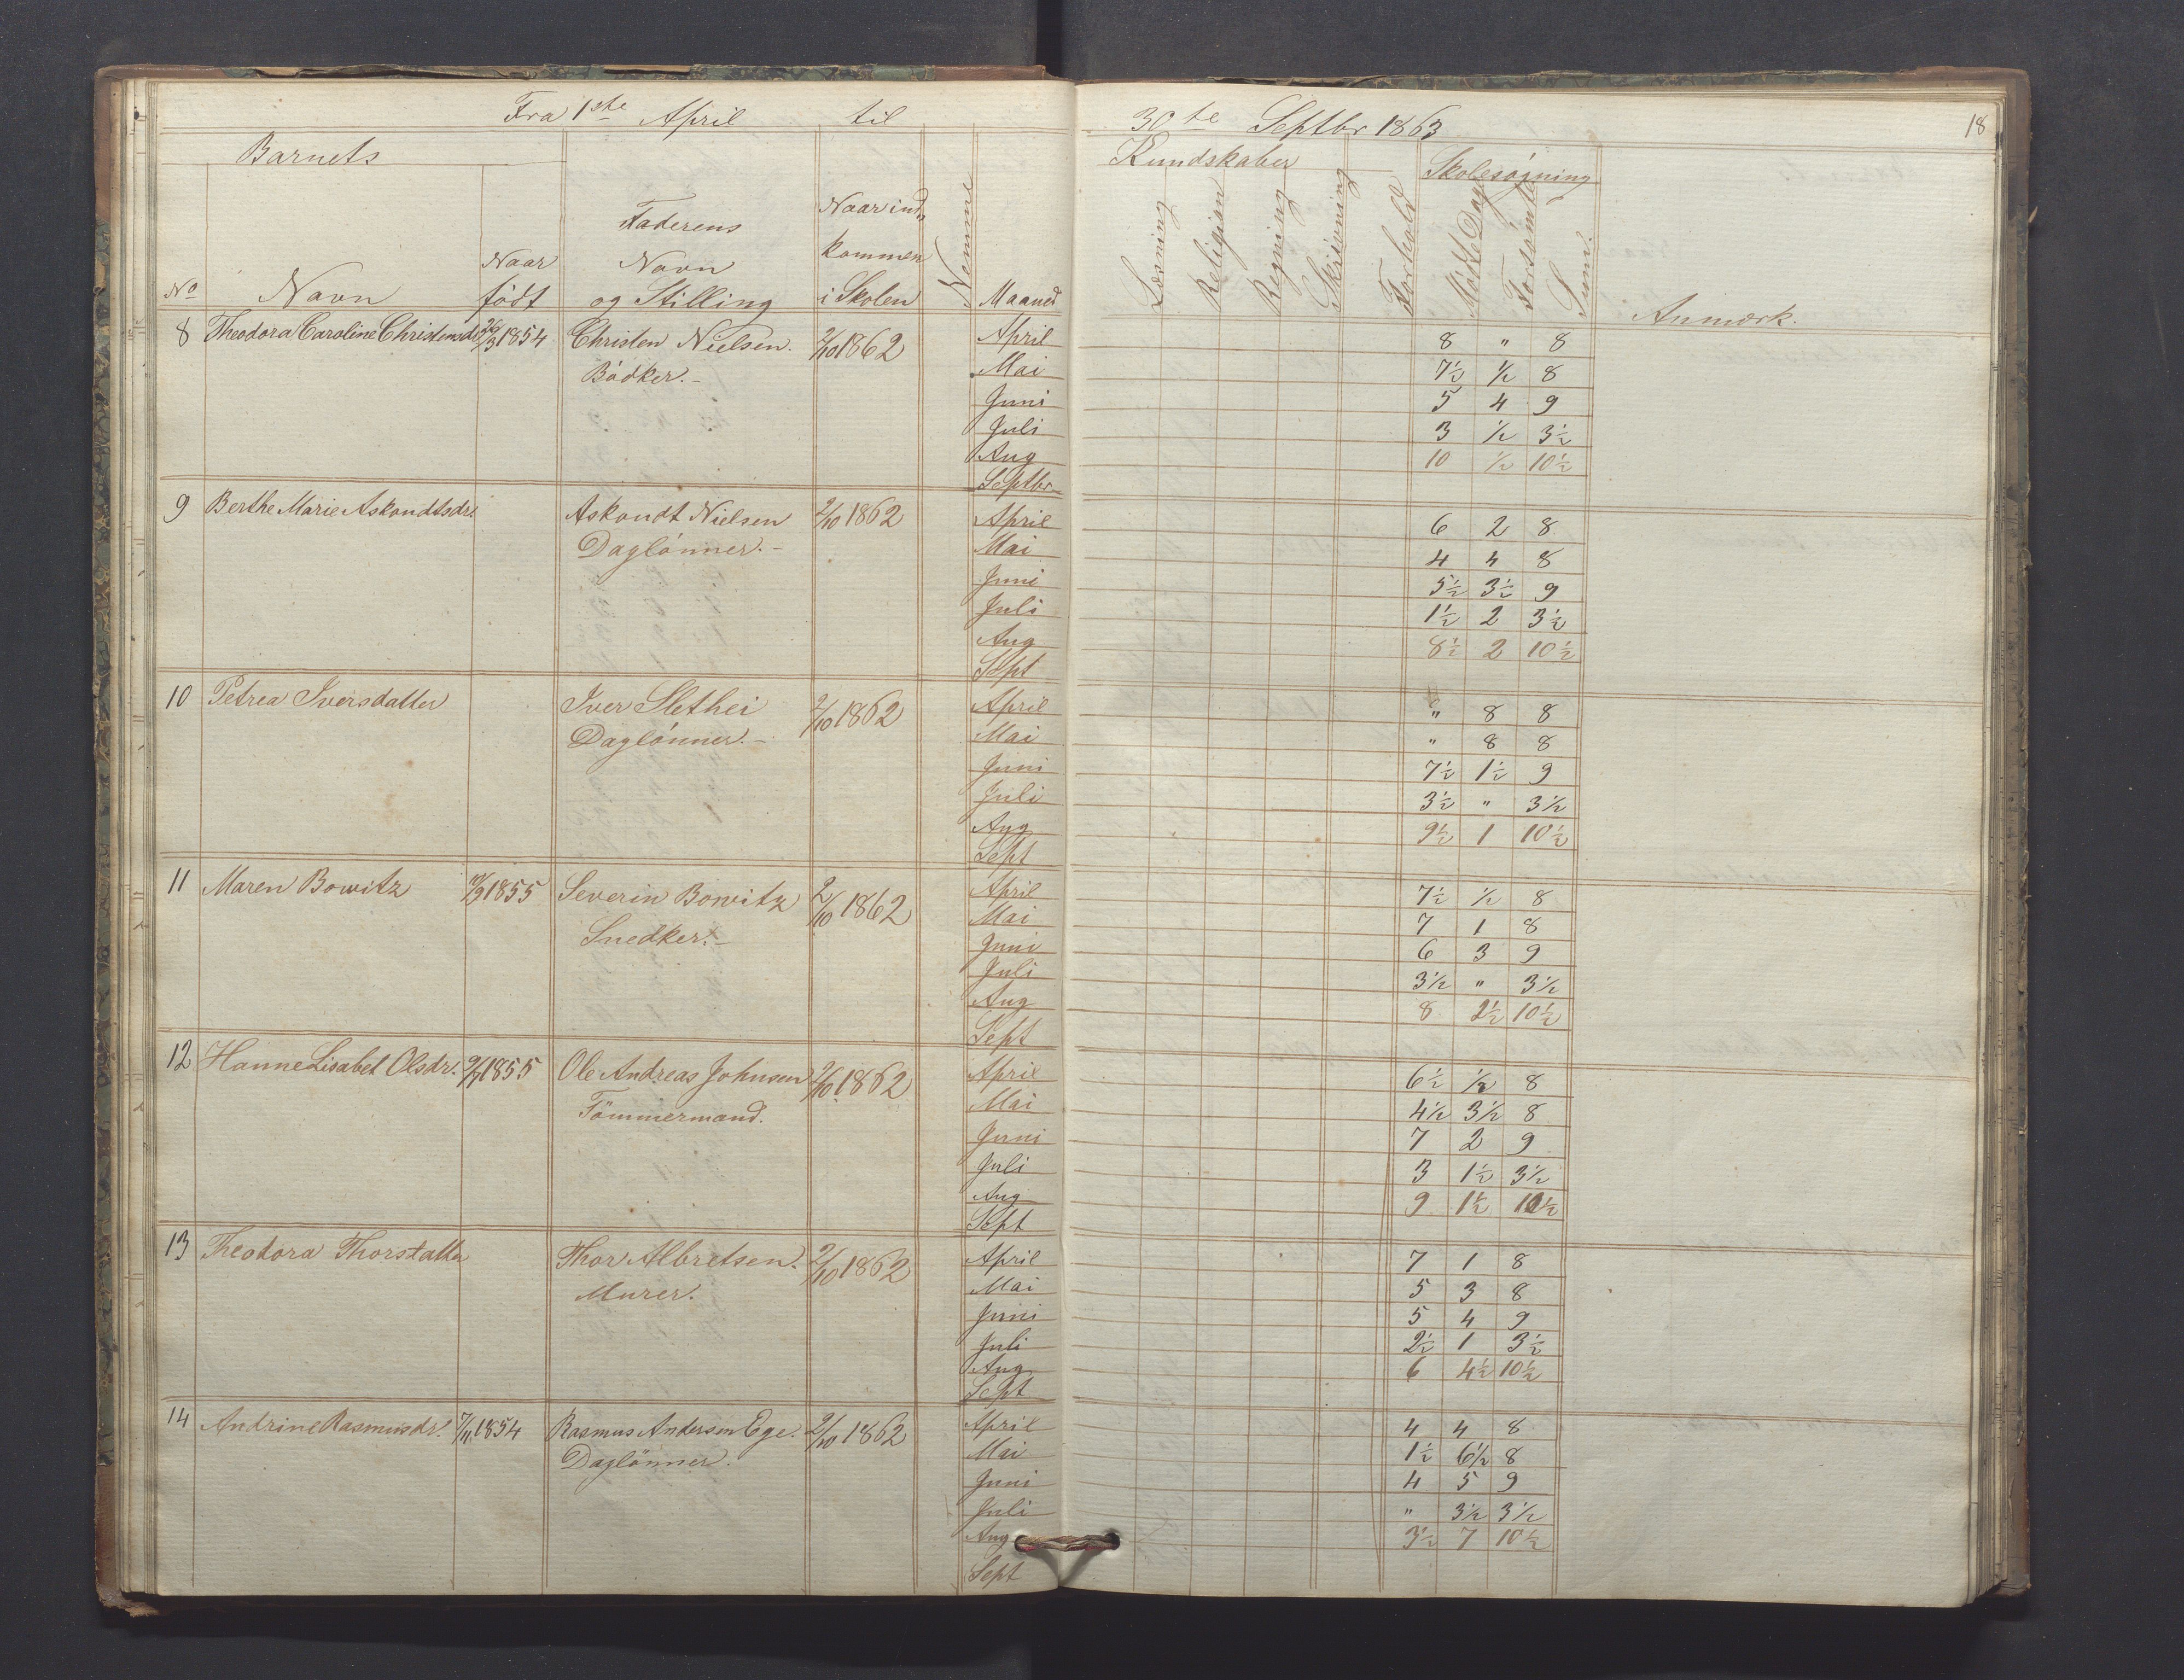 Fra 1ste April til 30te Septbr 1863 18
Barnets Kundskaber Skolesøgning
No Navn Naar født Faderens Navn og Stilling Naar ind- kommen i Skolen Nemme Maaned Læsning Religion Regning Skrivning Forhold Mødte Dage Forsømte Sum. Anmærk.
8 Theodora Caroline Christensdr 1854 Christen Nielsen. 2/10 1862 April 8 " 8
Bødker. Mai 7½ ½ 8
Juni 5 4 9
Juli 3 ½ 3½
Aug 10 ½ 10½
Septbr
9 Berthe Marie Askoudtsdr. Askoudt Nielsen 2/10 1862 April 6 2 8
Daglønner. Mai 4 4 8
Juni 5½ 3½ 9
Juli 1½ 2 3½
Aug 8½ 2 10½
Sept
10 Petrea Iversdatter Iver Slethei 2/10 1862 April " 8 8
Daglønner. Mai " 8 8
Juni 7½ 1½ 9
Juli 3½ " 3½
Aug 9½ 1 10½
Sept
11 Maren Bowitz 1855 Severin Bowitz 2/10 1862 April 7½ ½ 8
Snedker. Mai 7 1 8
Juni 6 3 9
Juli 3½ " 3½
Aug 8 2½ 10½
Sept
12 Hanne Lisabet Olsdr. 1855 Ole Andreas Johnsen 2/10 1862 April 6½ 8
Tömmermand. Mai 4½ 3½ 8
Juni 7 2 9
Juli 3 1½ 3½
Aug 9 1½ 10½
Sept
13 Theodora Thorsdatter Thor Albretsen. 2/10 1862 April 7 1 8
Murer. Mai 5 3 8
Juni 5 4 9
Juli 2½ 1 3½
Aug 6 4½ 10½
Sept
14 Andrine Rasmusdr. 7/11 1854 Rasmus Andersen Ege. 2/10 1862 April 4 4 8
Daglönner. Mai 1½ 6½ 8
Juni 4 5 9
Juli " 3½ 3½
Aug 3½ 7 10½
Sept